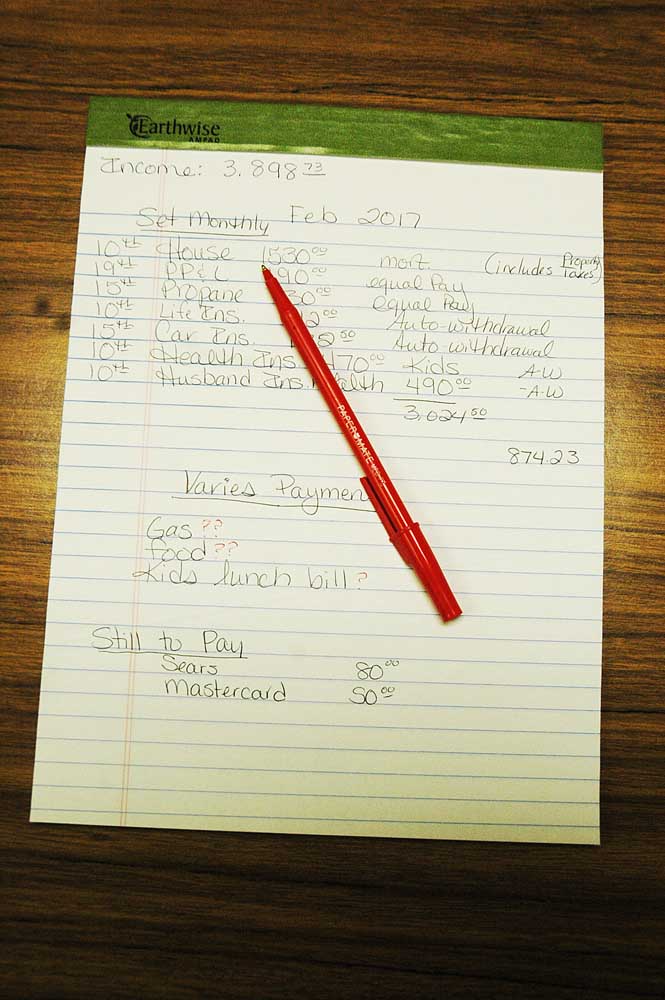 Earthwise
AMPAD
Income: 3,898 73
Set Monthly Feb 2017
10th House 1530 00 mort. (includes Property Taxes)
19th PP&L equal Pay
15th Propane equal Pay
10th Life Ins. Auto-withdrawal
15th Car Ins. Auto-withdrawal
10th Health Ins. 470 00 Kids A-W
10th Husband Ins. Health 490 00 -A-W
3,024 50
874.23
Varies
Gas ??
food ??
Kids lunch bill ?
Still to Pay
Sears 80 00
Mastercard 50 00
PAPER MATE